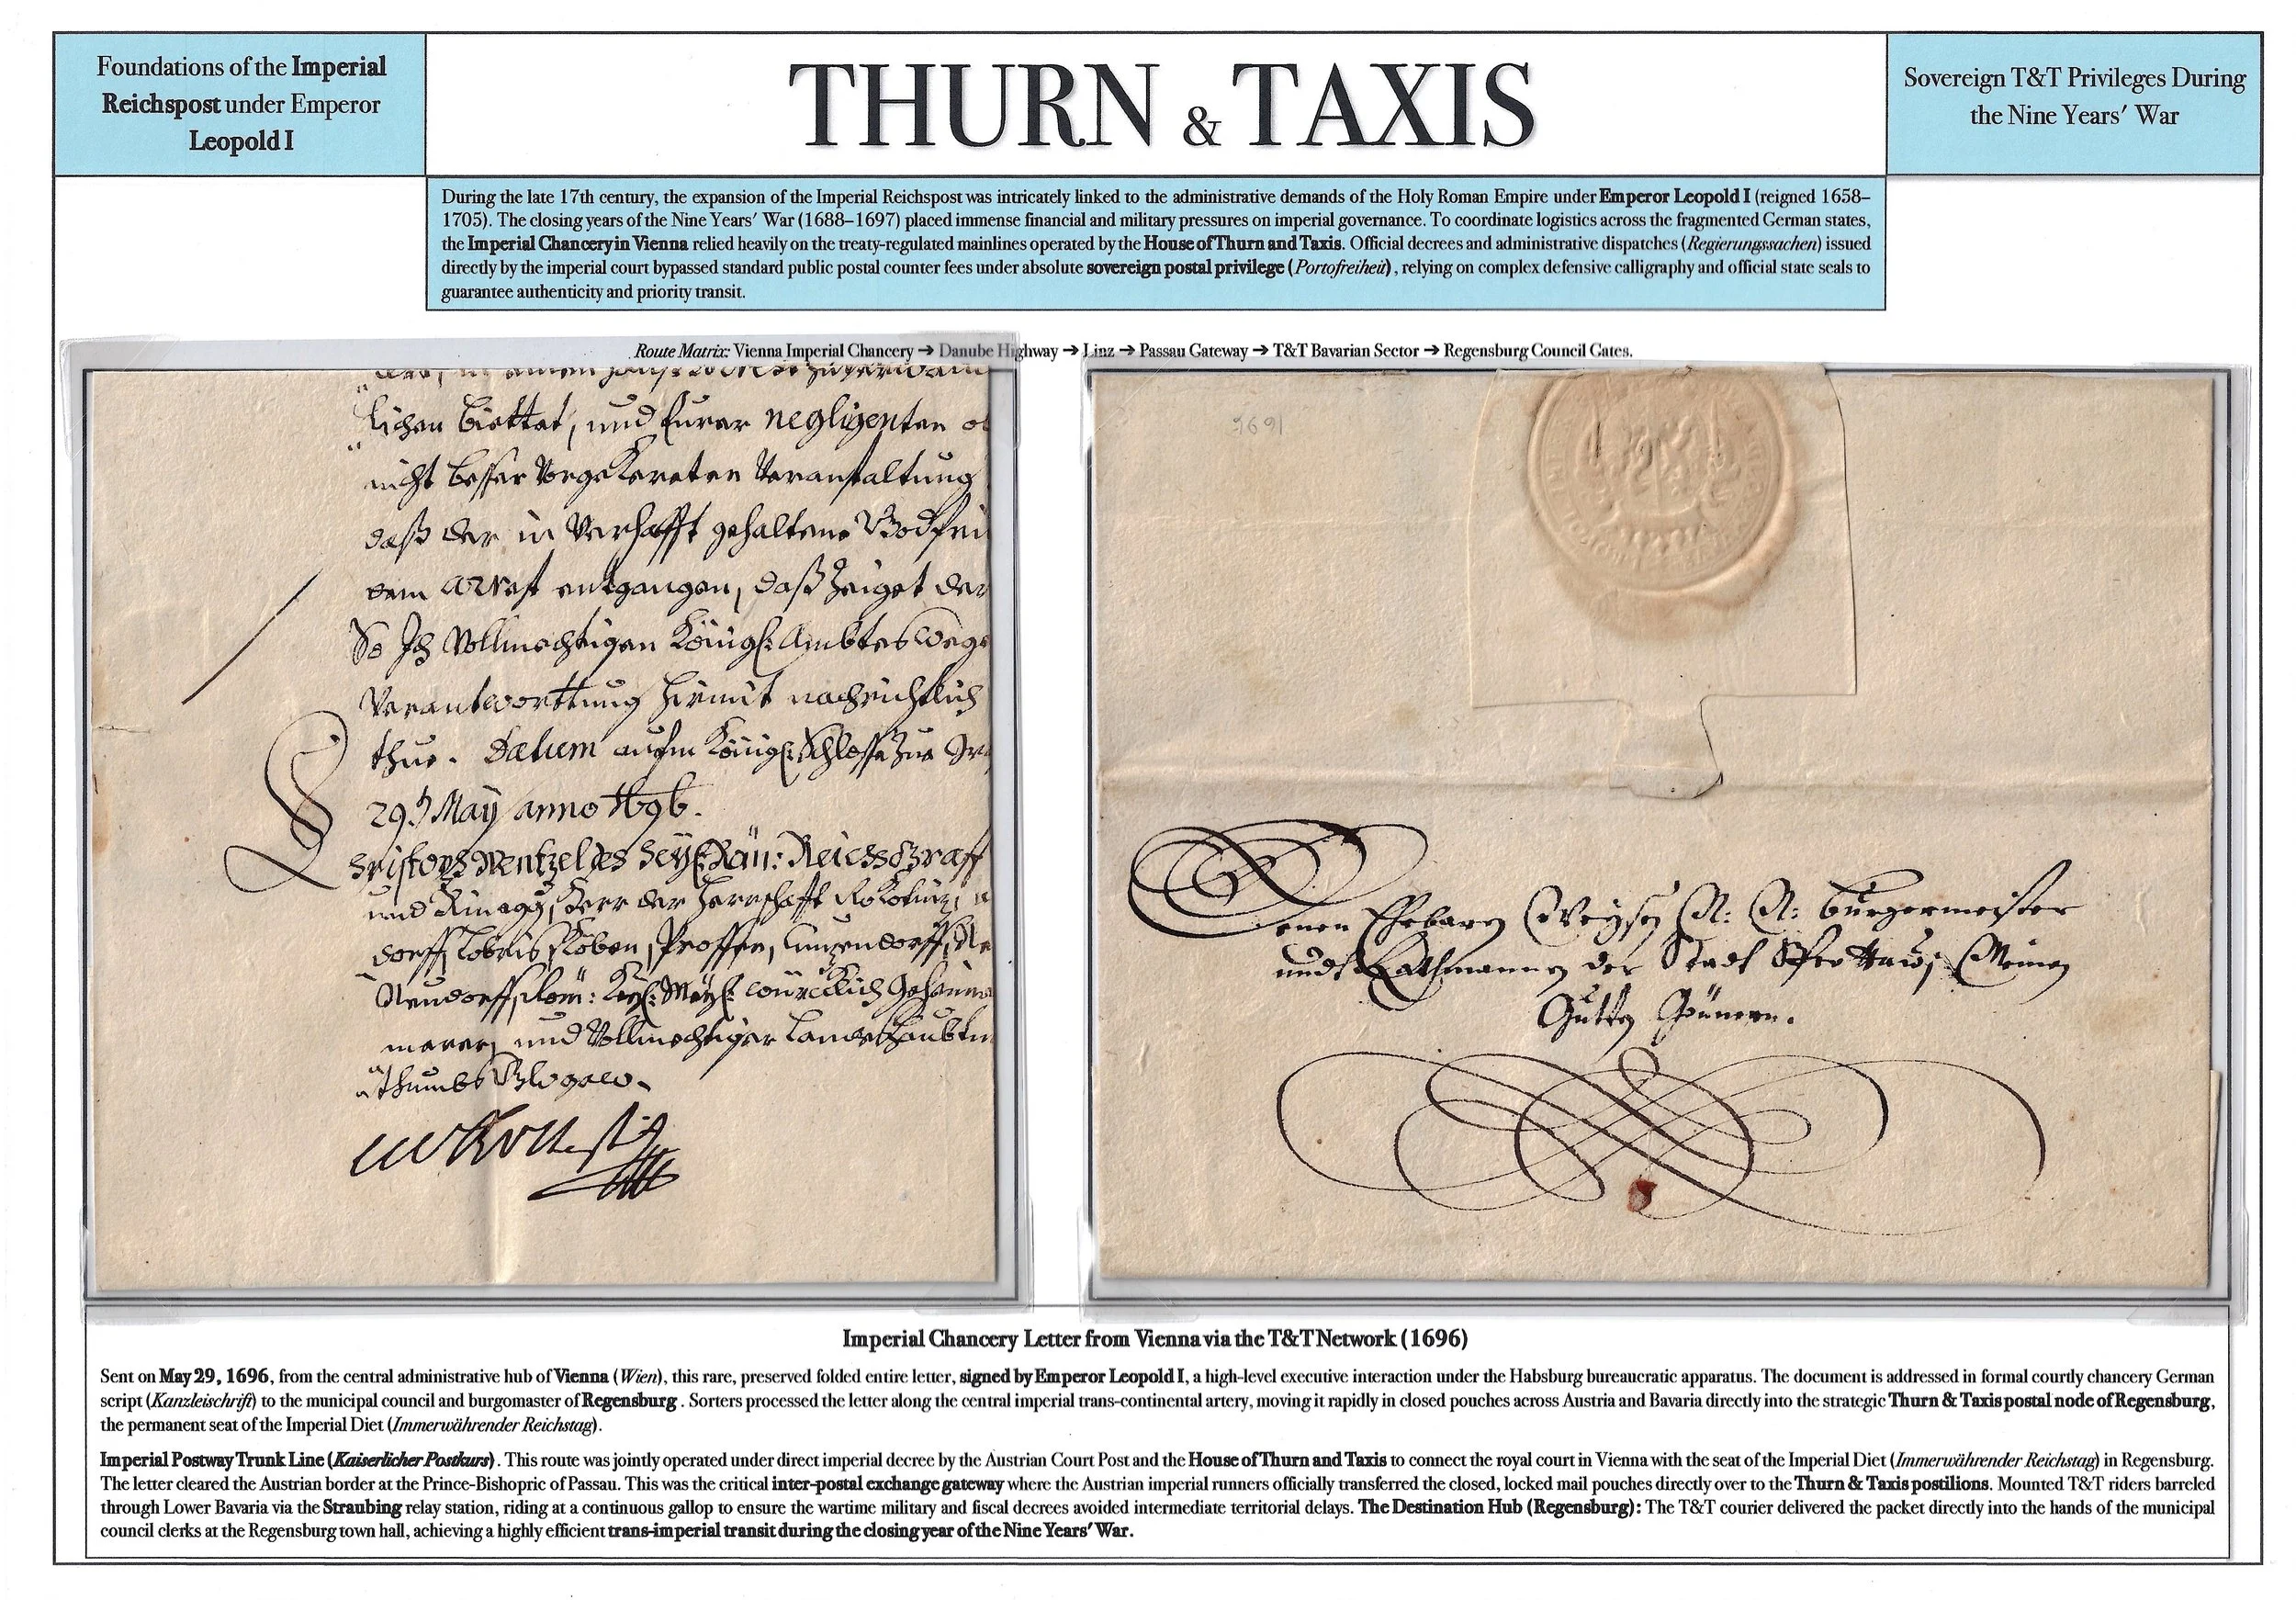 Foundations of the Imperial
Reichspost under Emperor
Leopold I
THURN & TAXIS
Sovereign T&T Privileges During
the Nine Years' War
During the late 17th century, the expansion of the Imperial Reichspost was intricately linked to the administrative demands of the Holy Roman Empire under Emperor Leopold I (reigned 1658–
1705). The closing years of the Nine Years' War (1688–1697) placed immense financial and military pressures on imperial governance. To coordinate logistics across the fragmented German states,
the Imperial Chancery in Vienna relied heavily on the treaty-regulated mainlines operated by the House of Thurn and Taxis. Official decrees and administrative dispatches (Regierungssachen) issued
directly by the imperial court bypassed standard public postal counter fees under absolute sovereign postal privilege (Portofreiheit), relying on complex defensive calligraphy and official state seals to
guarantee authenticity and priority transit.
Route Matrix: Vienna Imperial Chancery ➔ Danube Highway ➔ Linz ➔ Passau Gateway ➔ T&T Bavarian Sector ➔ Regensburg Council Gates.
lichen und Eurer negligenten
nicht besser Vorgekereten Veranstaltung
daß der in Verhafft gehaltene
dem arrest entgangen, daß zeiget der
So Ich Vollmechtigen Königl: Ambtes wege
Verantworttung hirmit nachrichtlich
thue. Datum aufm Königl: Schlosse zue
29. May anno 1696.
Christoph Wentzel des Heyl: Röm: Reichs Graff
und Herr der Herrschafft
dorff,
Neudorff, Röm: Kayl: Mayl: würcklich Geheime
und Vollmechtiger Landeshaubtm
thumbs Glogaw.
1696
Denen Ehrbaren Weysen N: N: Burgermeister
undt Rathmannen der Stadt Sprottaw, Meinen
Gutten Gönnern.
Imperial Chancery Letter from Vienna via the T&T Network (1696)
Sent on May 29, 1696, from the central administrative hub of Vienna (Wien), this rare, preserved folded entire letter, signed by Emperor Leopold I, a high-level executive interaction under the Habsburg bureaucratic apparatus. The document is addressed in formal courtly chancery German
script (Kanzleischrift) to the municipal council and burgomaster of Regensburg . Sorters processed the letter along the central imperial trans-continental artery, moving it rapidly in closed pouches across Austria and Bavaria directly into the strategic Thurn & Taxis postal node of Regensburg,
the permanent seat of the Imperial Diet (Immerwährender Reichstag).
Imperial Postway Trunk Line (Kaiserlicher Postkurs). This route was jointly operated under direct imperial decree by the Austrian Court Post and the House of Thurn and Taxis to connect the royal court in Vienna with the seat of the Imperial Diet (Immerwährender Reichstag) in Regensburg.
The letter cleared the Austrian border at the Prince-Bishopric of Passau. This was the critical inter-postal exchange gateway where the Austrian imperial runners officially transferred the closed, locked mail pouches directly over to the Thurn & Taxis postilions. Mounted T&T riders barreled
through Lower Bavaria via the Straubing relay station, riding at a continuous gallop to ensure the wartime military and fiscal decrees avoided intermediate territorial delays. The Destination Hub (Regensburg): The T&T courier delivered the packet directly into the hands of the municipal
council clerks at the Regensburg town hall, achieving a highly efficient trans-imperial transit during the closing year of the Nine Years' War.